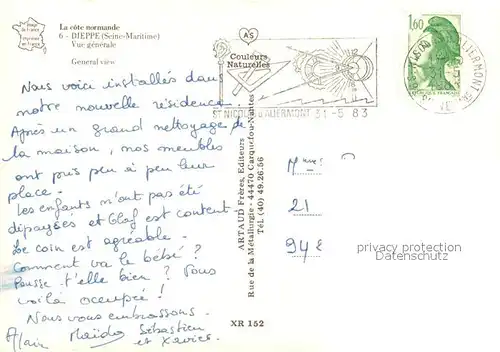 La côte normande
6 - DIEPPE (Seine-Maritime)
Vue générale
General view
Nous voici installés dans
notre nouvelle résidence.
Après un grand nettoyage de
la maison, nos meubles
ont pris peu à peu leur
place.
Les enfants n'ont pas été
dépaysés et Olaf est content.
Le coin est agréable.
Comment va le bébé ?
Pousse-t'elle bien ? Vous
voilà occupé !
Nous vous embrassons.
Alain Maïda Sébastien
et Xavier.
ARTAUD Frères, Editeurs
Rue de la Métallurgie - 44470 Carquefou-Nantes
Tél. (40) 49.26.56
XR 152
AS
Couleurs
Naturelles
ST NICOLAS D'ALIERMONT 31-5 83
1,60
REPUBLIQUE FRANÇAISE
Mme
21
94
privacy protection
Datenschutz